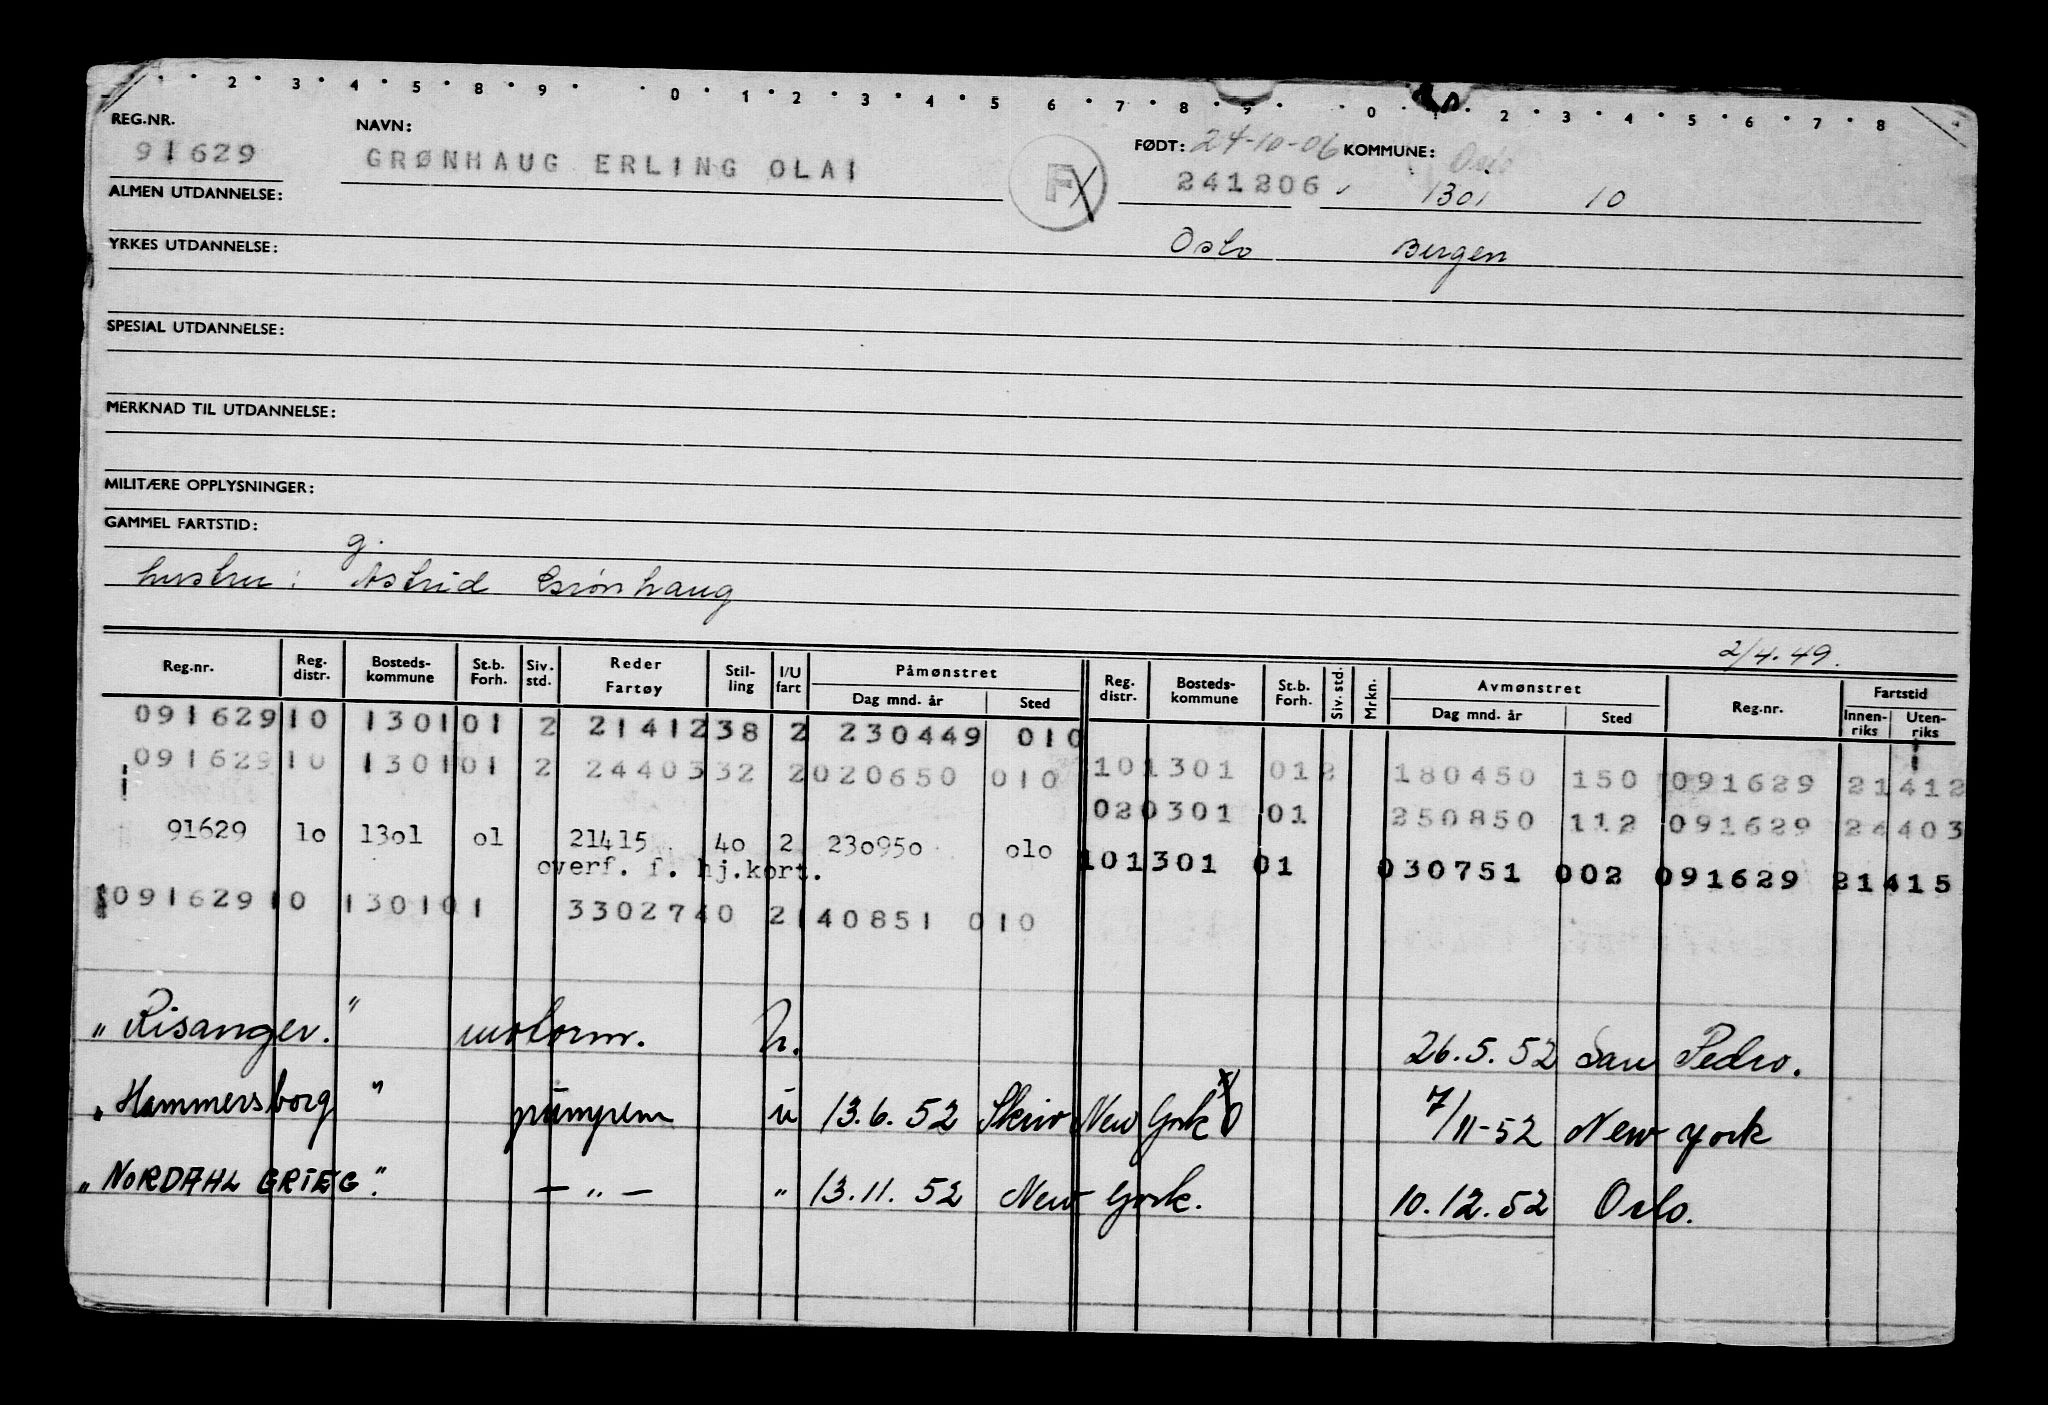 2 3 4 5 8 9 0 1 2 3 4 5 6 7 8 9 0 2 3 4 5 6 7 8
REG.NR. NAVN: FØDT: 24-10-06 KOMMUNE: Oslo
91629 GRØNHAUG ERLING OLAI F 241206 1301 10
ALMEN UTDANNELSE:
YRKES UTDANNELSE: Oslo Bergen
SPESIAL UTDANNELSE:
MERKNAD TIL UTDANNELSE:
MILITÆRE OPPLYSNINGER:
GAMMEL FARTSTID:
g.
hustru: Astrid Grønhaug
2/4.49.
Reg.nr. Reg. distr. Bosteds-kommune St.b. Forh. Siv. std. Reder Fartøy Stil-ling I/U fart Påmønstret Dag mnd. år Sted Reg. distr. Bosteds-kommune St.b. Forh. Siv. std. Mrkn. Avmønstret Dag mnd. år Sted Reg.nr. Fartstid Innen-riks Uten-riks
091629 10 1301 01 2 21412 38 2 230449 010
091629 10 1301 01 2 24403 32 2 020650 010 10 1301 01 2 180450 150 091629 21412
020301 01 250850 112 091629 24403
91629 10 1301 01 21415 40 2 230950 010 101301 01 030751 002 091629 21415
overf. f. hj.kort.
091629 10 1301 01 33027 40 2 140851 010
"Risanger." motorm. 26.5.52 San Pedro.
"Hammersborg" pumpem u 13.6.52 Skriv New York 7/11-52 New York
"NORDAHL GRIEG." — " — " 13.11.52 New York. 10.12.52 Oslo.